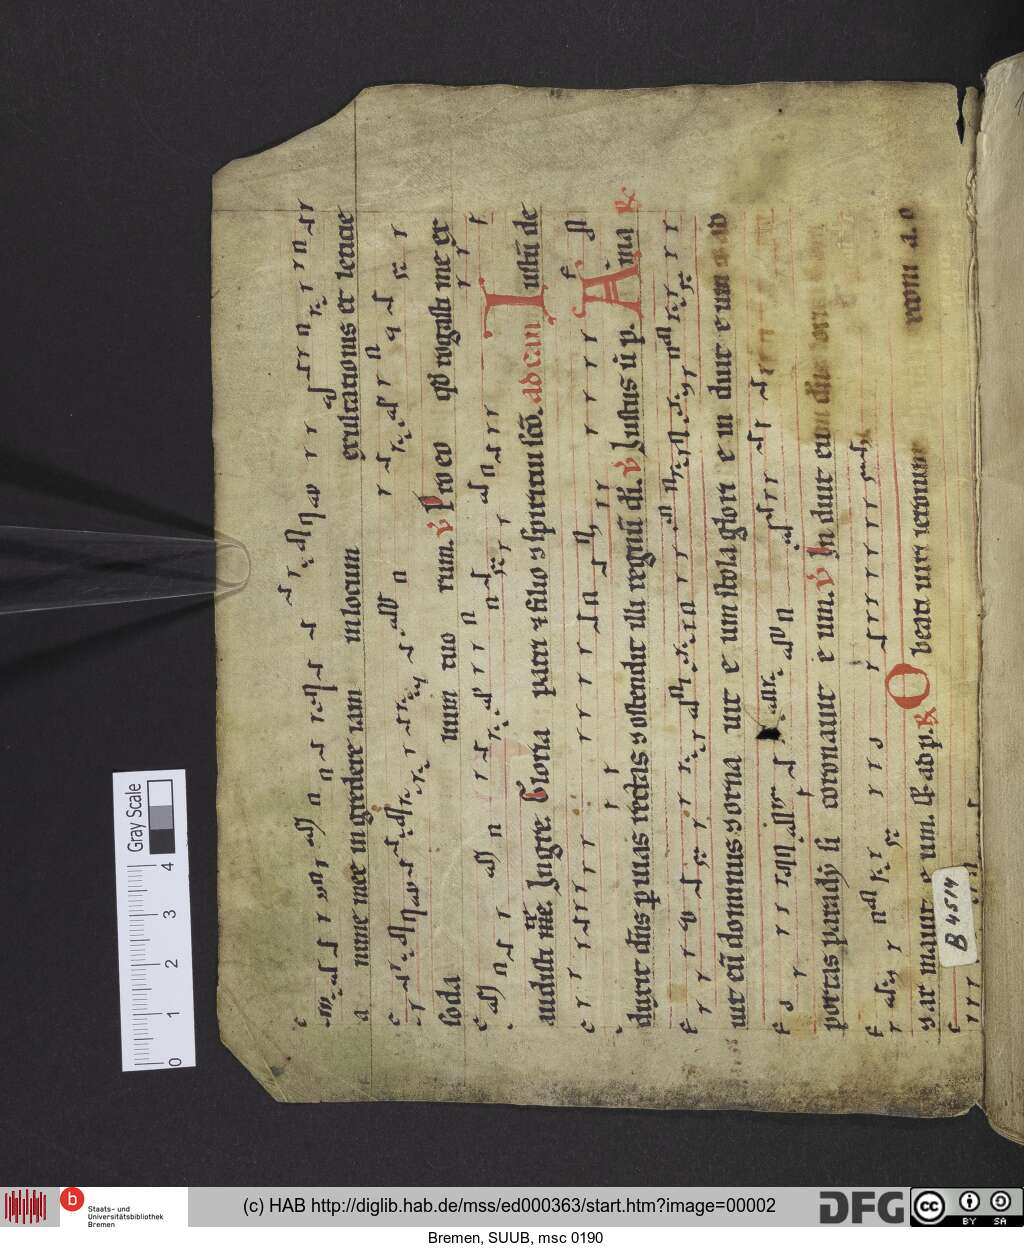 a nime mee in gredere iam in locum exultationis et leticie
soda uum tuo rum. V Pro eo qd rogasti me et
audisti me. Ingre. Gloria patri et filio et spiritui sco. ad can Iustu de
duxit dns p uias rectas et ostendit illi regnu di. V Iustus u p. Ama R
uit eu dominus et orna uit e um stola glori e in duit e um
portas paradysi coronauit e um. V In duit eum
et ar mauit e um. ad p. R O beati uiri ieronimi
B 4514
Gray Scale
0 1 2 3 4
b Staats- und Universitätsbibliothek Bremen
(c) HAB http://diglib.hab.de/mss/ed000363/start.htm?image=00002
DFG
cc BY SA
Bremen, SUUB, msc 0190